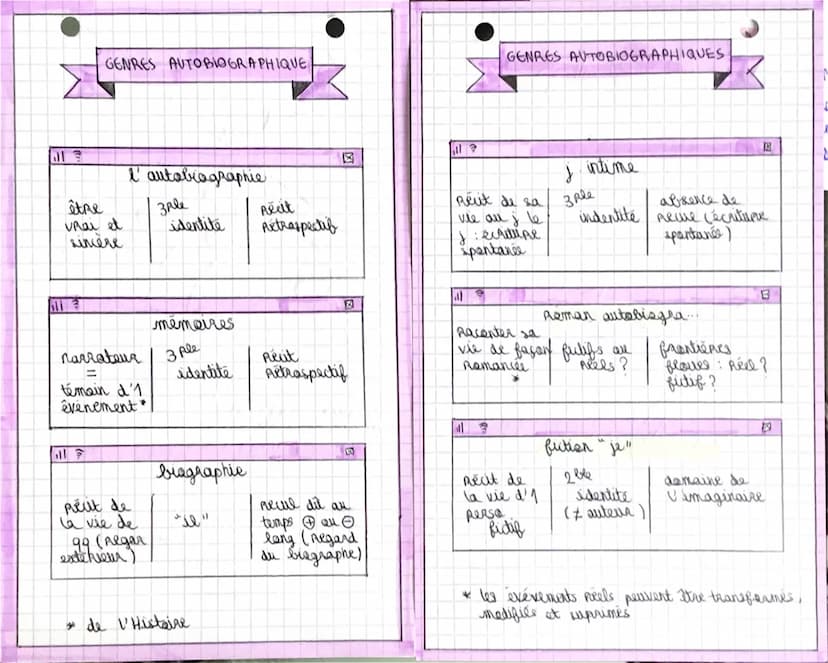 GENRES AUTOBIOGRAPHIQUE
l'autobiographie
être
vrai et
sincère
3ple
identité
récit
rétrospectif
mémoires
narrateur
=
témoin d'1
évènement*
3ple
identité
récit
rétrospectif
biographie
récit de
la vie de
qq (regar
extérieur)
"il"
recul dû au
temps ⊕ ou ⊖
long (regard
du biographe)
* de l'Histoire
GENRES AUTOBIOGRAPHIQUES
j intime
Récit de sa
vie au j le
j : écriture
spontanée
3ple
indentité
absence de
recul (écriture
spontanée)
Roman autobiogra...
Raconter sa
vie de façon
romancée
*
fictifs ou
réels ?
frontières
floues : réel ?
fictif ?
fiction "je"
récit de
la vie d'1
perso
fictif
2ble
identité
(≠ auteur)
domaine de
l'imaginaire
* les événements réels peuvent être transformés,
modifiés et suprimés